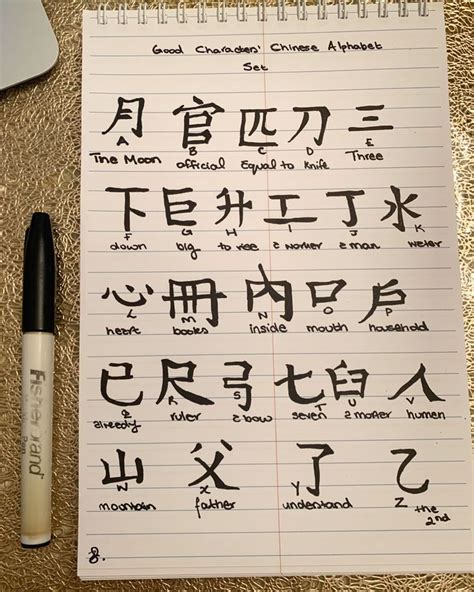 Good Characters' Chinese Alphabet
Set
月 官 匹 刀 三
A B C D E
The Moon official Equal to Knife Three
下 巨 升 工 丁 水
F G H I J K
down big to a worker a man water
心 冊 內 口 戶
L M N O P
heart books inside mouth household
已 尺 弓 七 臼 人
Q R S T U V
already ruler a bow seven a human
山 父 了 乙
W X Y Z
mountain father understand the 2nd
Fisherbrand